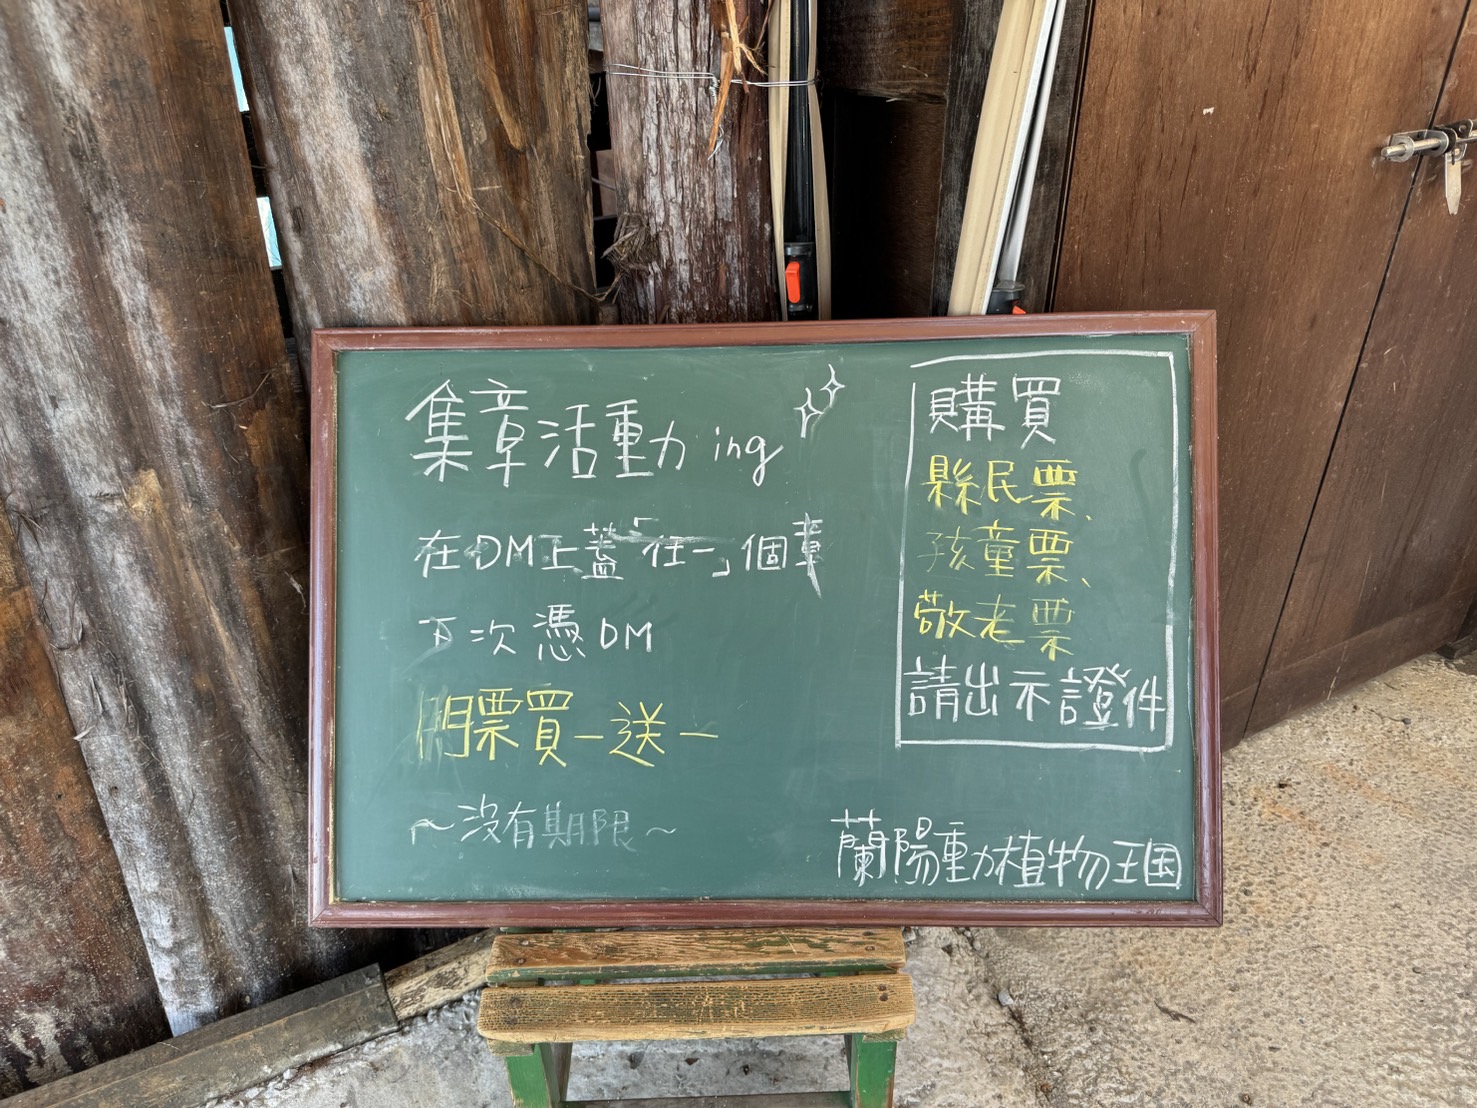 集章活動 ing
在DM上蓋「任一」個章
下次憑DM
門票買一送一
～沒有期限～
購買
縣民票、
孩童票、
敬老票
請出示證件
蘭陽動植物王国